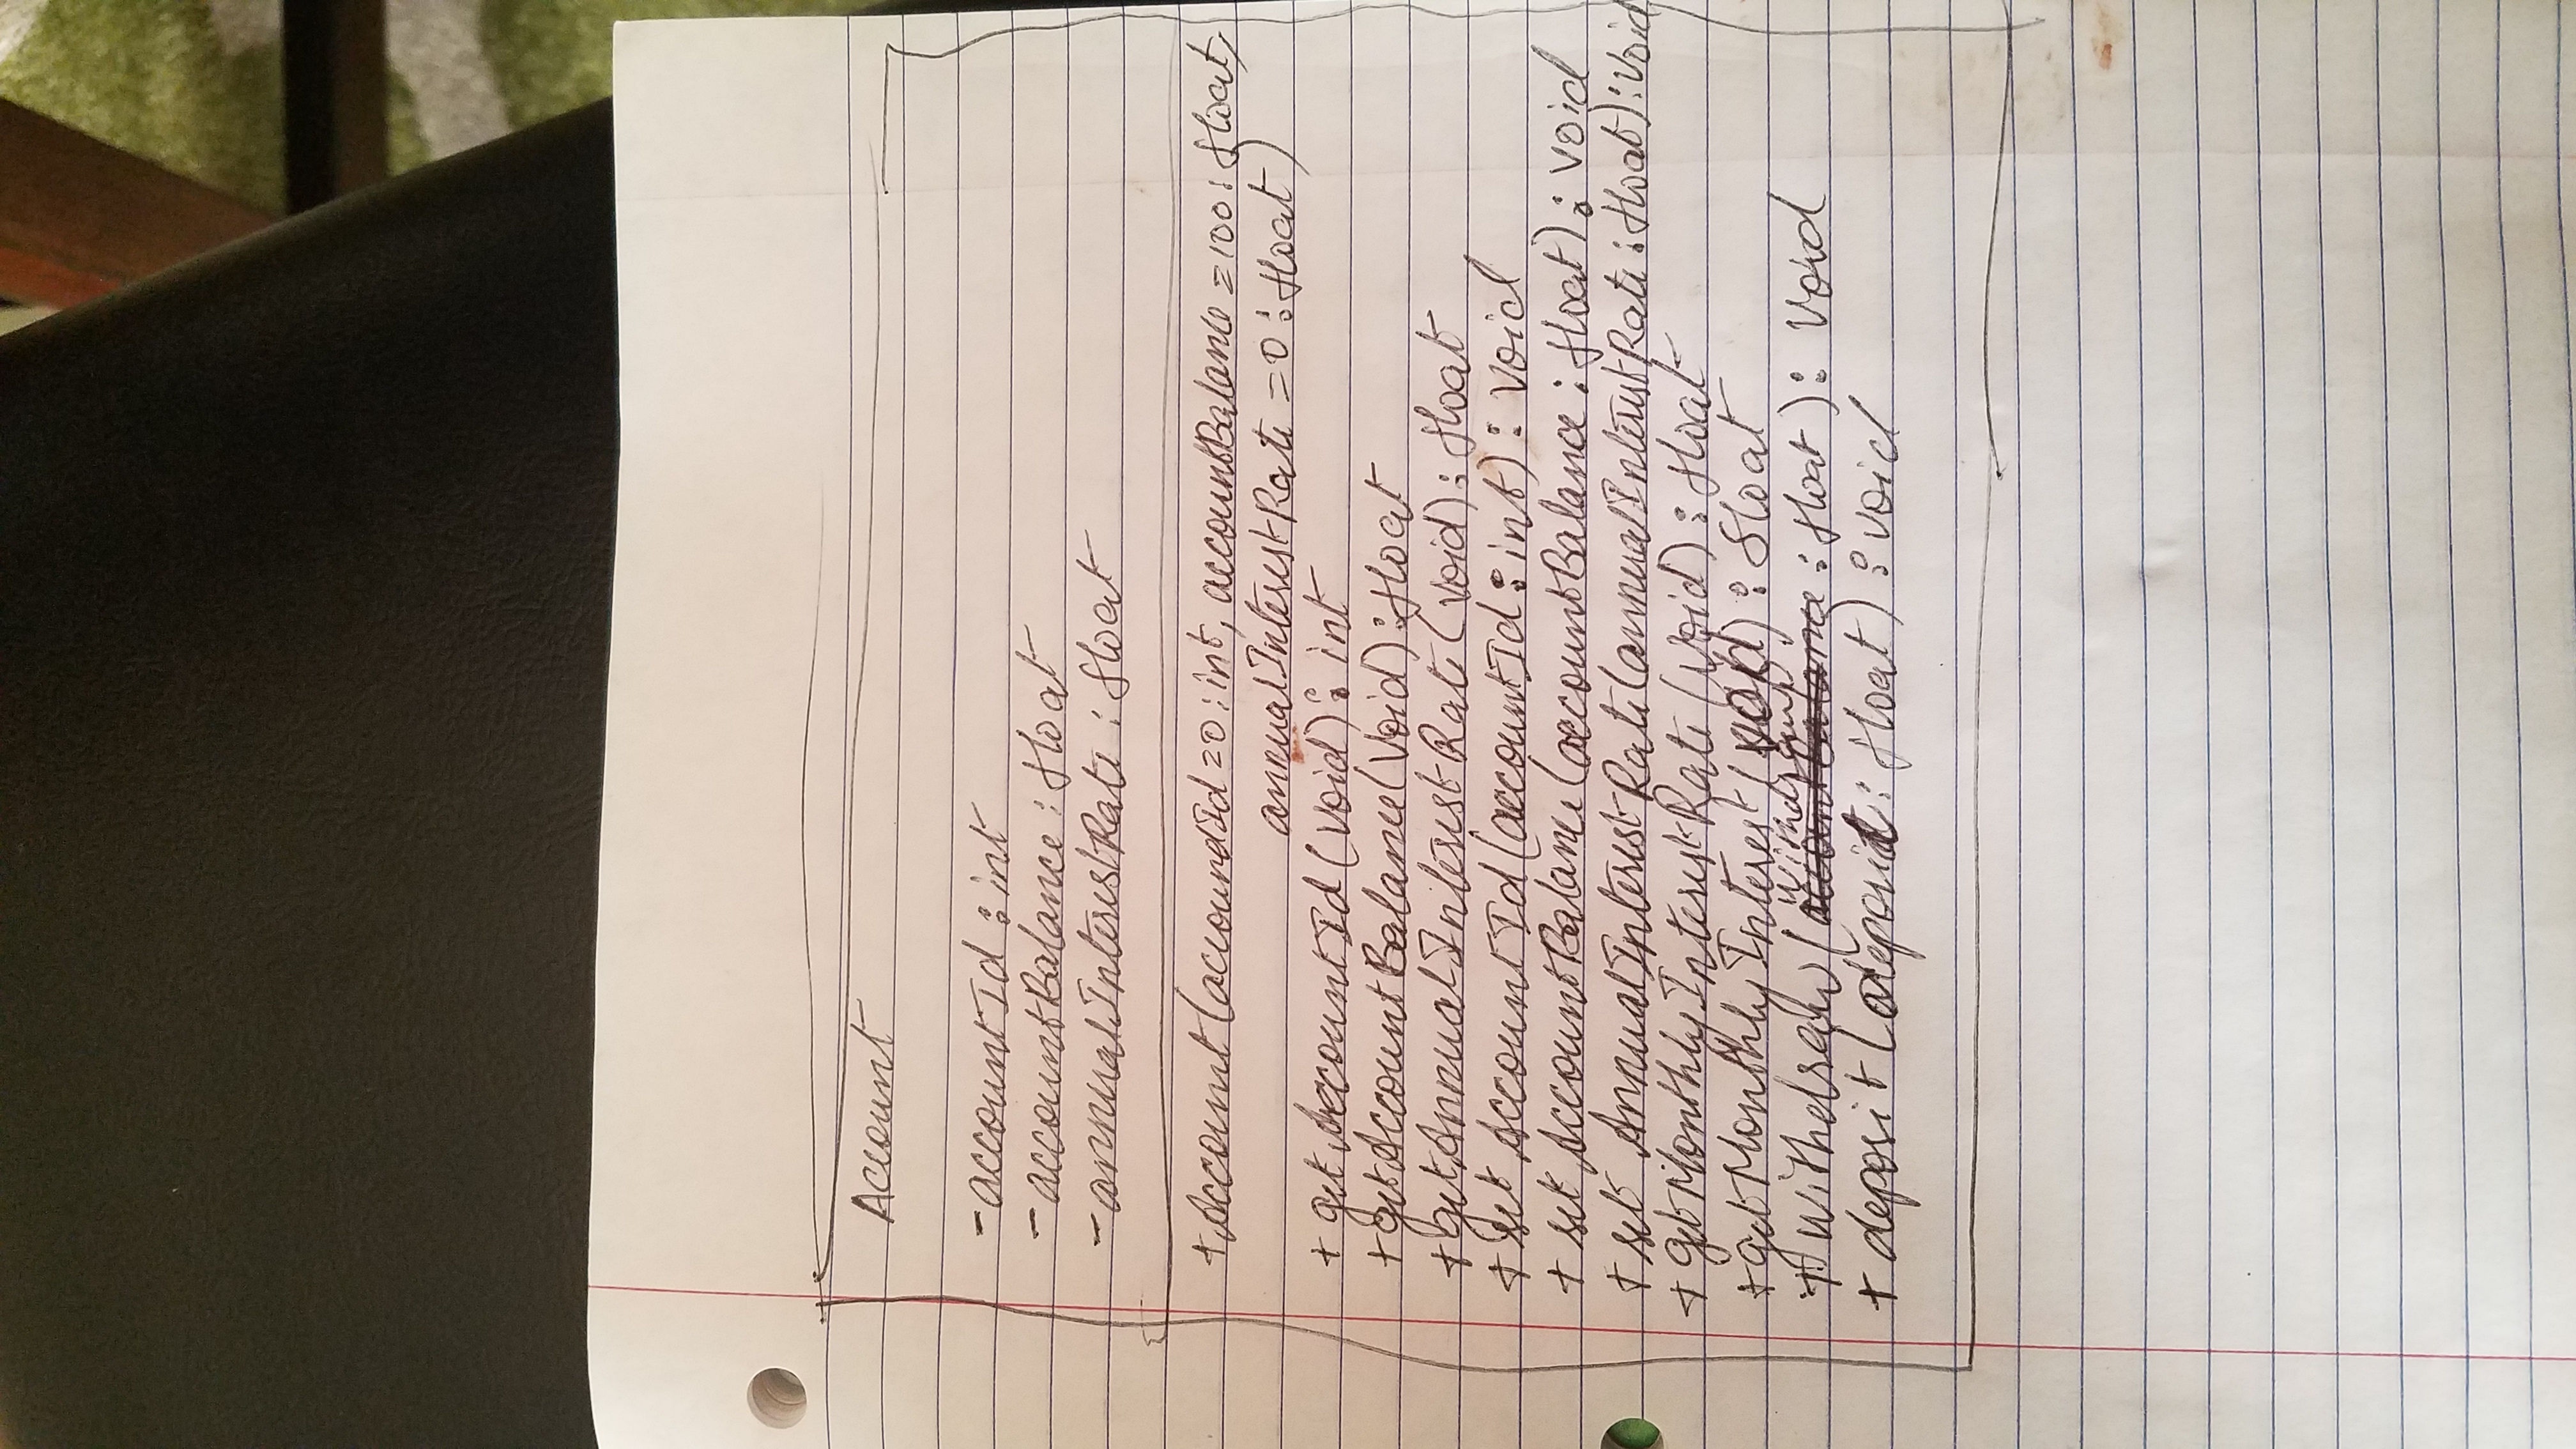 Account
- accountId : int
- accountBalance : float
- annualInterestRate : float
+ Account (accoundId = 0 : int, accountBalance = 100 : float,
annualInterestRate = 0 : float)
+ getAccountId (void) : int
+ getAccountBalance (Void) : float
+ getAnnualInterestRate (void) : float
+ set AccountId (accountId : int) : Void
+ set AccountBalance (accountBalance : float) : Void
+ set AnnualInterestRate (annualInterestRate : float) : Void
+ getMonthlyInterestRate (Void) : float
+ getMonthlyInterest (void) : float
+ Withdraw (accountBalance withdraw : float) : Void
+ deposit (deposit : float) : void